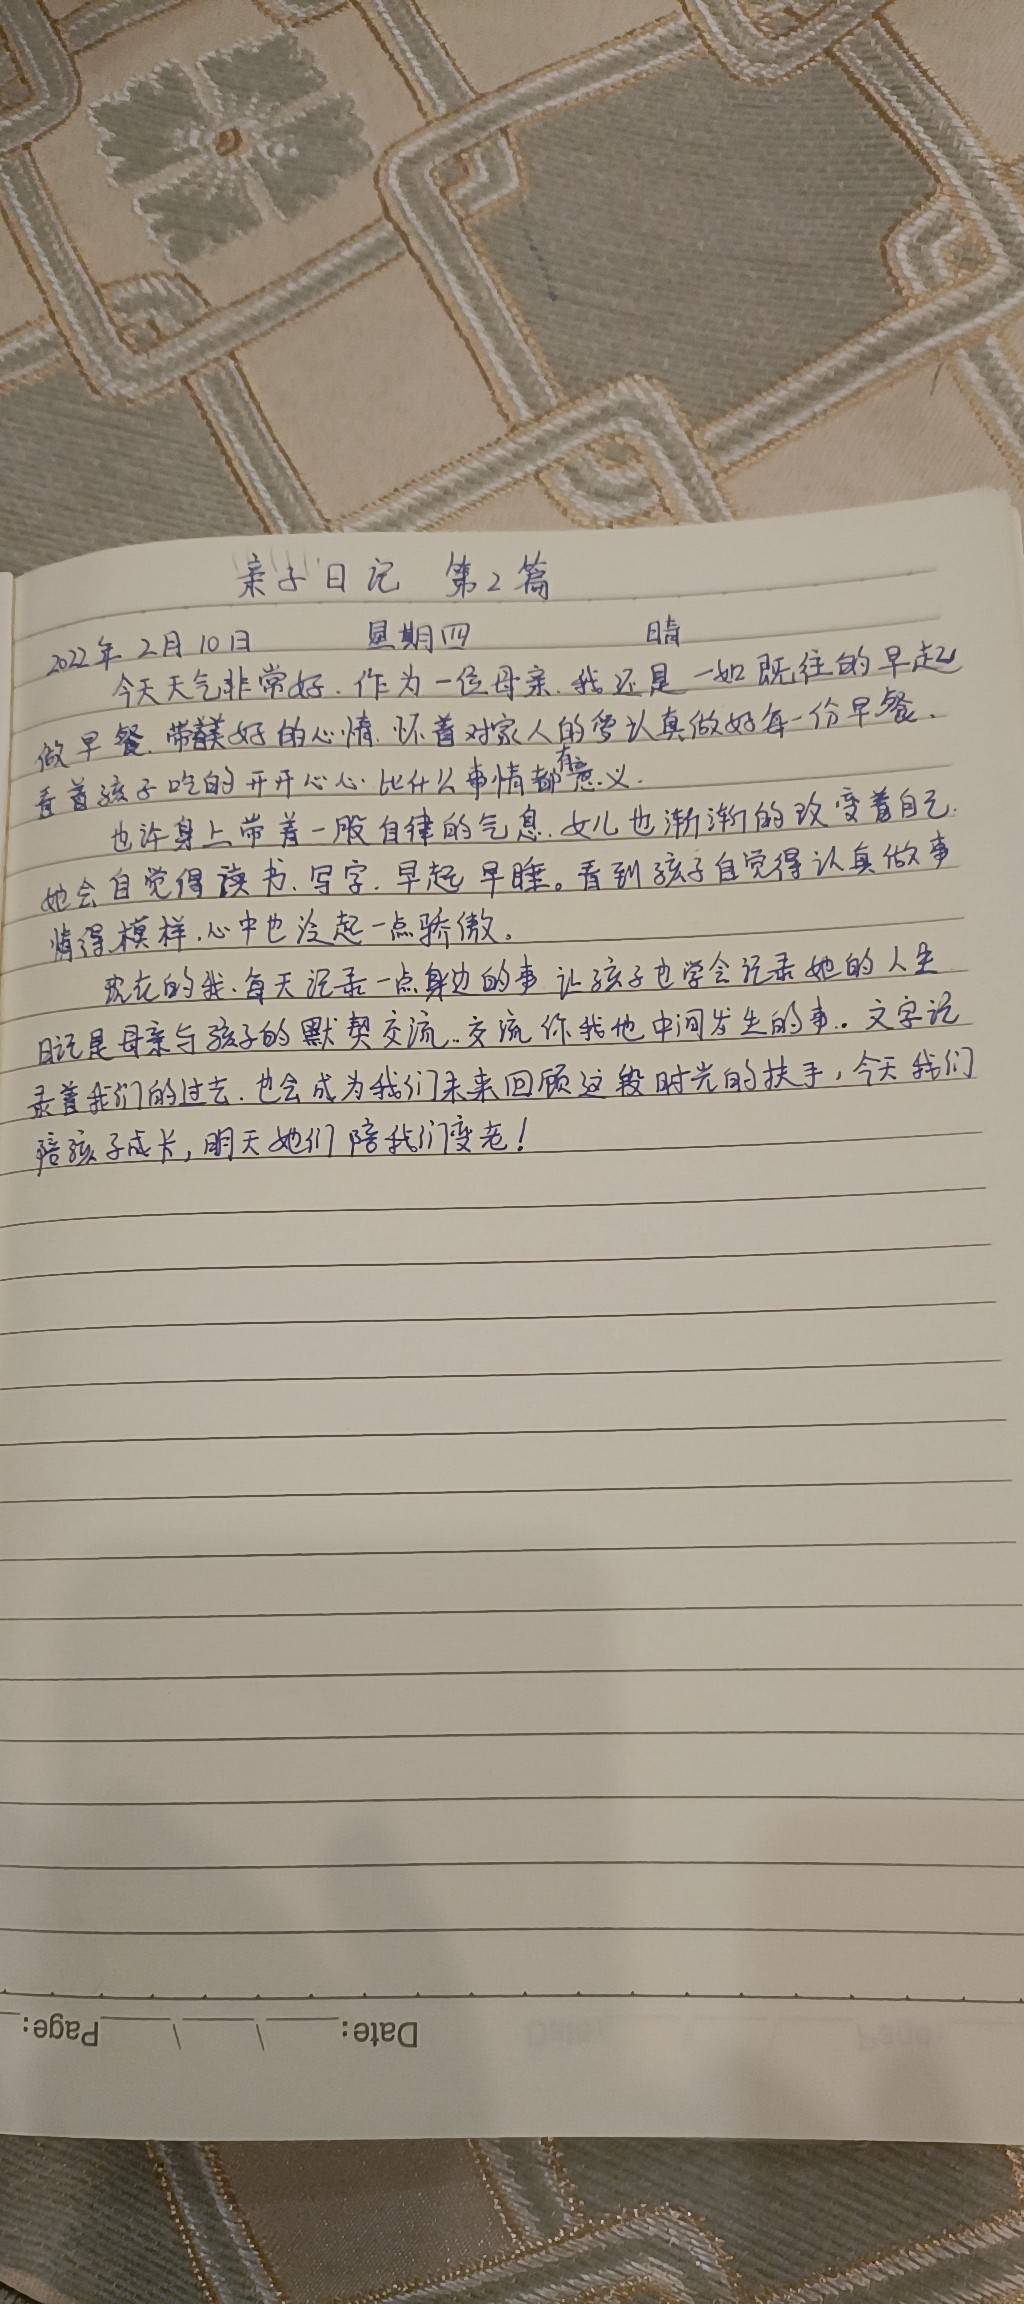 亲子日记 第2篇
2022年2月10日 星期四 晴
今天天气非常好.作为一位母亲.我还是一如既往的早起
做早餐.带着美好的心情.怀着对家人的爱认真做好每一份早餐.
看着孩子吃的开开心心.比什么事情都有意义.
也许身上带着一股自律的气息.女儿也渐渐的改变着自己.
她会自觉得读书.写字.早起早睡。看到孩子自觉得认真做事
情得模样.心中也泛起一点骄傲。
现在的我.每天记录一点身边的事 让孩子也学会记录她的人生
日记是母亲与孩子的默契交流..交流你我他中间发生的事.。文字记
录着我们的过去.也会成为我们未来回顾这段时光的扶手,今天我们
陪孩子成长,明天她们陪我们变老!
Date: Page: